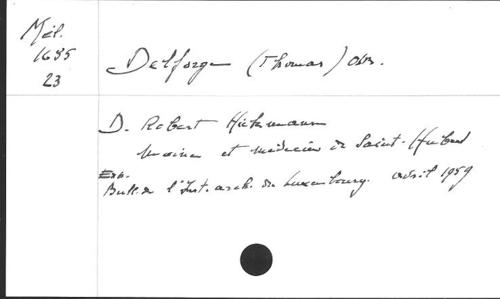 Mél.
1685
23
Delforge (Thomas) osb.
D. Robert Hickmann
Moine et médecin de Saint-Hubert
Extr.
Bull. de l'Inst. arch. du Luxembourg. avril 1959